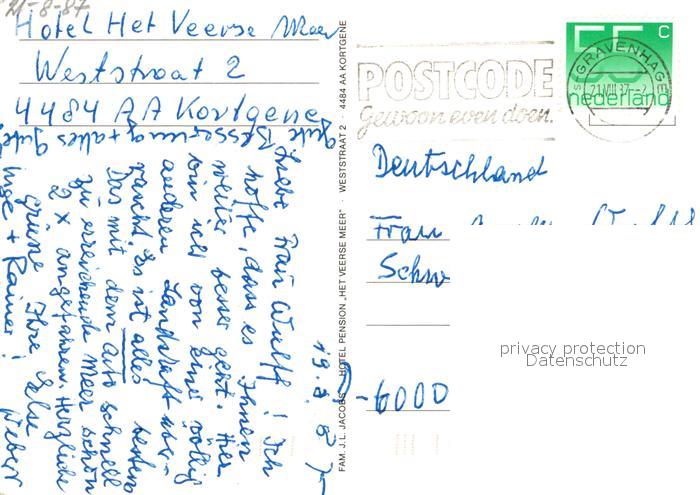 21-8-87
Hotel Het Veerse Meer
Weststraat 2
4484 AA Kortgene
Gute Besserung + alles Gute!
19.8.87
Liebe Frau Wulff! Ich
hoffe, dass es Ihnen
weiter besser geht. Hier
bin ich von einer völlig
anderen Landschaft über-
rascht. Es ist alles bestens
Das mit dem Auto schnell
zu erreichende Meer schon
2 x angefahren. Herzliche
Grüsse Ihre Ilse Weber
Inge + Rainer!
FAM. J.L. JACOBS · HOTEL PENSION „HET VEERSE MEER" · WESTSTRAAT 2 · 4484 AA KORTGENE
POSTCODE
Gewoon even doen.
'S-GRAVENHAGE
21.VIII.87
55 c
nederland
Deutschland
Frau
Schw
D-6000
privacy protection
Datenschutz